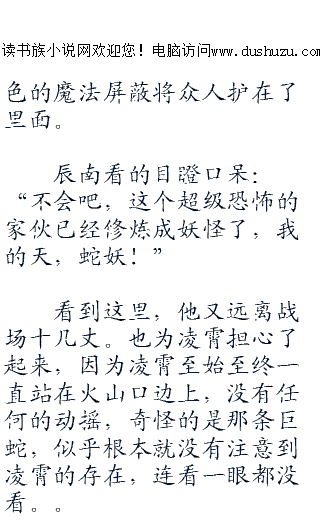 读书族小说网欢迎您！电脑访问www.dushuzu.com
色的魔法屏蔽将众人护在了
里面。
辰南看的目瞪口呆：
“不会吧，这个超级恐怖的
家伙已经修炼成妖怪了，我
的天，蛇妖！”
看到这里，他又远离战
场十几丈。也为凌霄担心了
起来，因为凌霄至始至终一
直站在火山口边上，没有任
何的动摇，奇怪的是那条巨
蛇，似乎根本就没有注意到
凌霄的存在，连看一眼都没
看。。